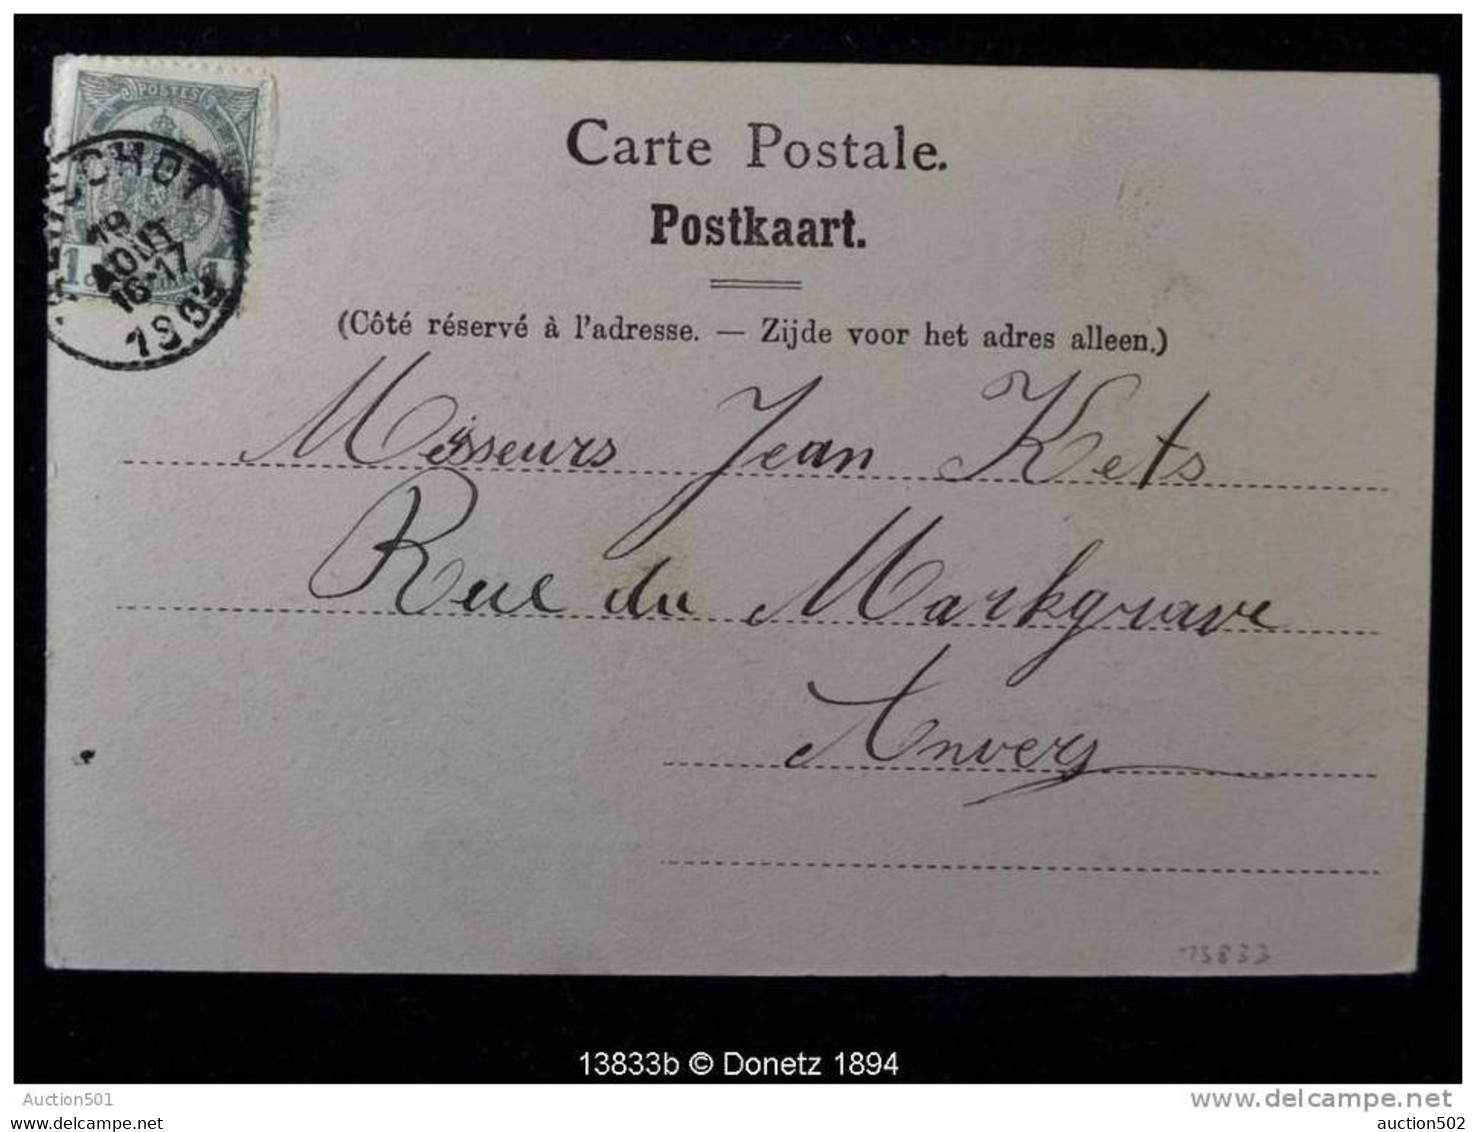 POSTES
19
AOUT
16-17
1903
1 1
Carte Postale.
Postkaart.
(Côté réservé à l'adresse. — Zijde voor het adres alleen.)
Messeurs Jean Kets
Rue du Markgrave
Anvers
13833
13833b © Donetz 1894
Auction501
www.delcampe.net
auction502